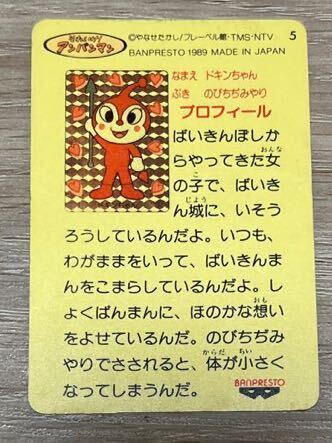 それいけ!
アンパンマン
©やなせたかし/フレーベル館・TMS・NTV
5
BANPRESTO 1989 MADE IN JAPAN
なまえ ドキンちゃん
ぶき のびちぢみやり
プロフィール
ばいきんぼしか
らやってきた女
の子で、ばいき
ん城に、いそう
ろうしているんだよ。いつも、
わがままをいって、ばいきんま
んをこまらしているんだよ。し
ょくぱんまんに、ほのかな想い
をよせているんだ。のびちぢみ
やりでさされると、体が小さく
なってしまうんだ。
BANPRESTO